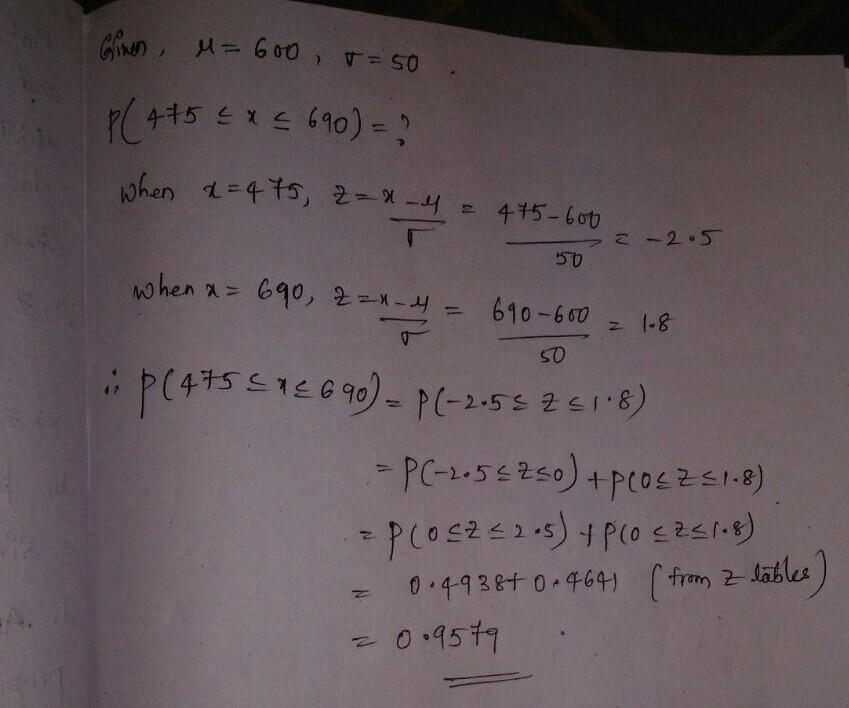 Given, μ = 600, σ = 50.
P(475 ≤ x ≤ 690) = ?
When x = 475, z = x-μ/σ = 475-600/50 = -2.5
when x = 690, z = x-μ/σ = 690-600/50 = 1.8
∴ P(475 ≤ x ≤ 690) = P(-2.5 ≤ z ≤ 1.8)
= P(-2.5 ≤ z ≤ 0) + P(0 ≤ z ≤ 1.8)
= P(0 ≤ z ≤ 2.5) + P(0 ≤ z ≤ 1.8)
= 0.4938 + 0.4641 (from z tables)
= 0.9579.